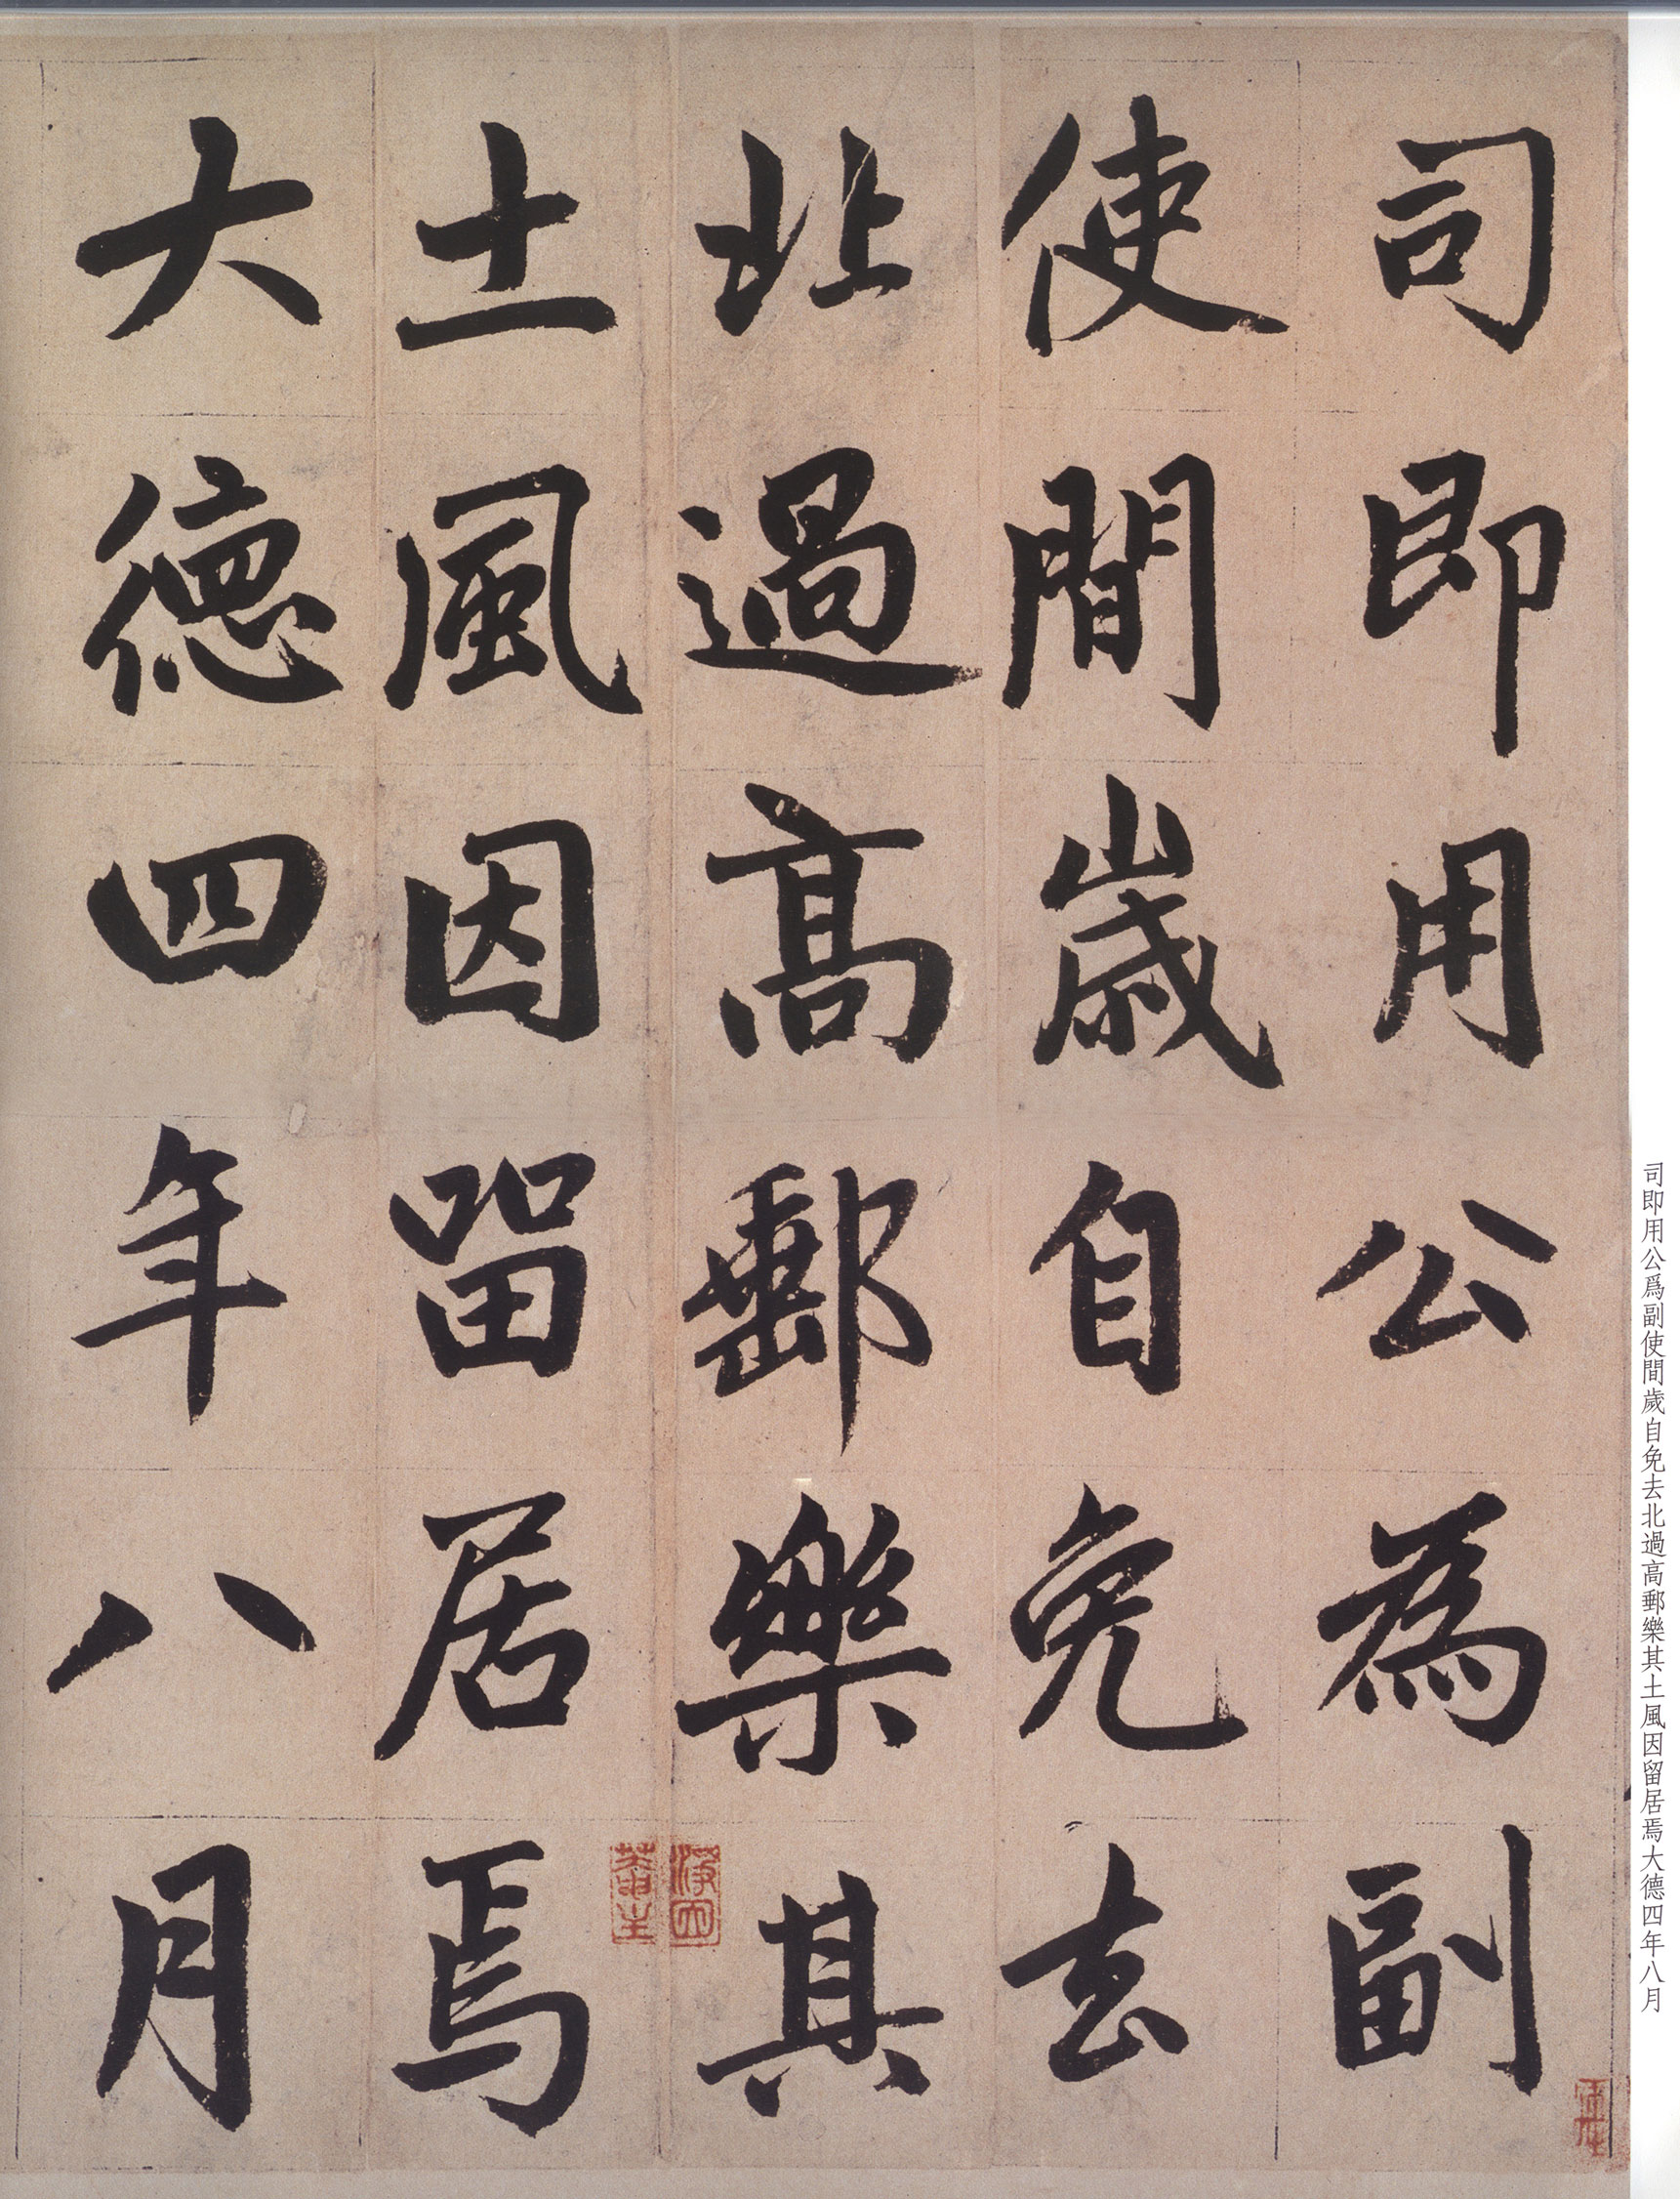 司即用公為副
使間歲自免去
北過高郵樂其
土風因留居焉
大德四年八月
司即用公爲副使間歲自免去北過高郵樂其土風因留居焉大德四年八月